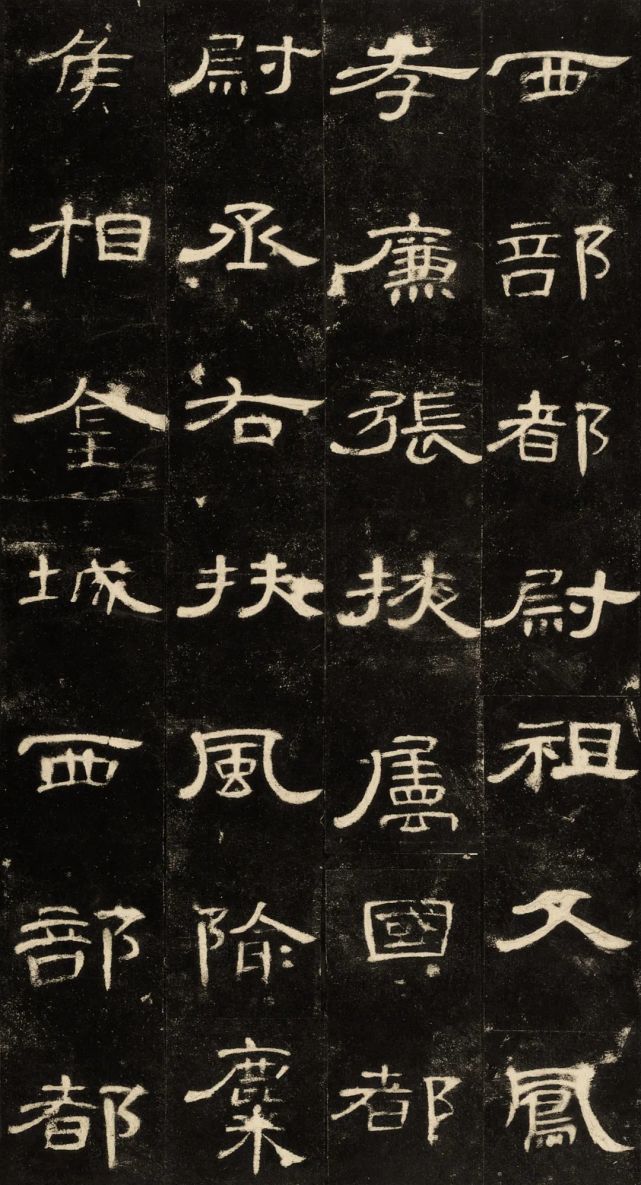 西部都尉祖父鳳
孝廉張掖屬國都
尉丞右扶風隃麋
侯相金城西部都